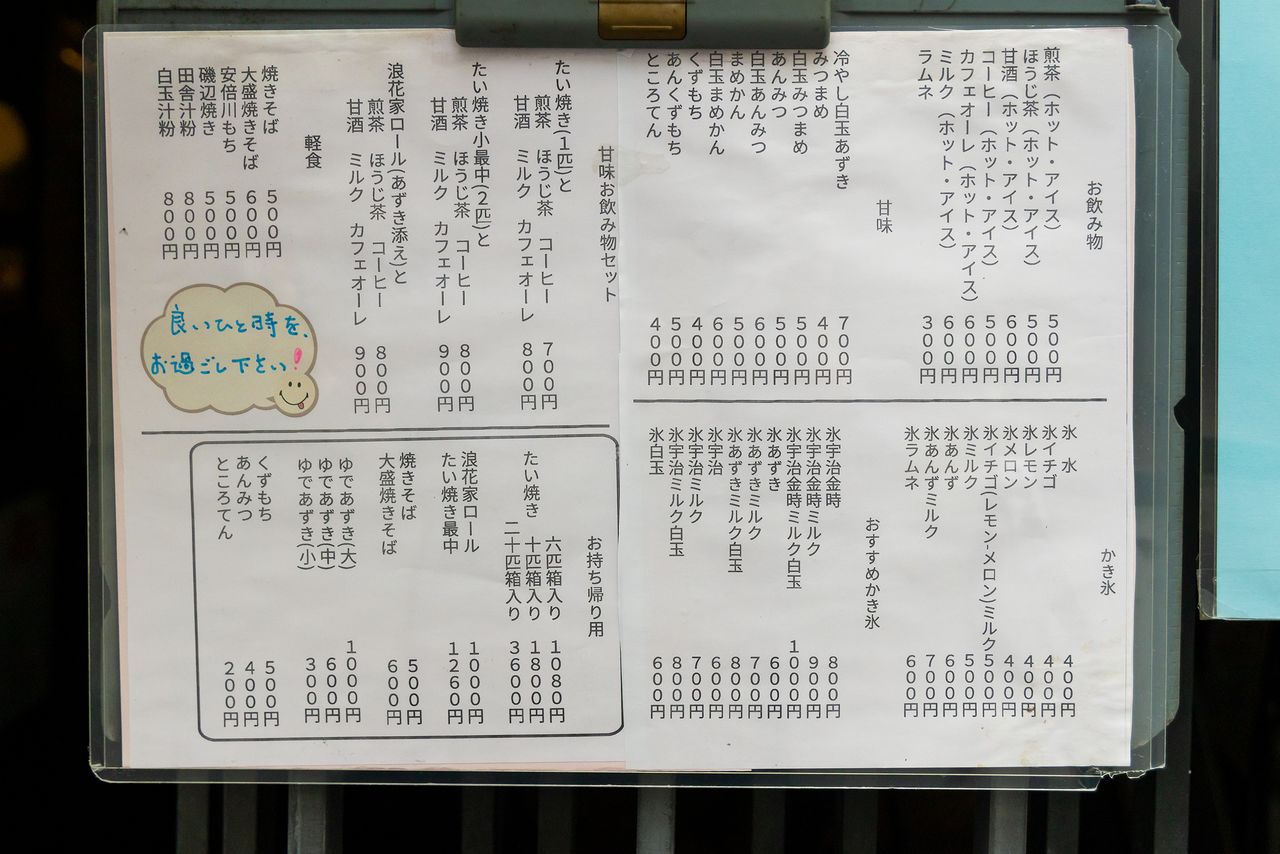 お飲み物
煎茶（ホット・アイス） ５００円
ほうじ茶（ホット・アイス） ５００円
甘酒（ホット・アイス） ６００円
コーヒー（ホット・アイス） ５００円
カフェオーレ（ホット・アイス） ６００円
ミルク（ホット・アイス） ６００円
ラムネ ３００円
甘味
冷やし白玉あずき ７００円
みつまめ ４００円
白玉みつまめ ５００円
あんみつ ５００円
白玉あんみつ ６００円
まめかん ５００円
白玉まめかん ６００円
くずもち ４００円
あんくずもち ５００円
ところてん ４００円
かき氷
氷 水 ４００円
氷イチゴ ４００円
氷レモン ４００円
氷メロン ４００円
氷イチゴ(レモン-メロン)ミルク ５００円
氷ミルク ５００円
氷あんず ６００円
氷あんずミルク ７００円
氷ラムネ ６００円
おすすめかき氷
氷宇治金時 ８００円
氷宇治金時ミルク ９００円
氷宇治金時ミルク白玉 １０００円
氷あずき ６００円
氷あずきミルク ７００円
氷あずきミルク白玉 ８００円
氷宇治 ６００円
氷宇治ミルク ７００円
氷宇治ミルク白玉 ８００円
氷白玉 ６００円
甘味お飲み物セット
たい焼き(１匹)と
煎茶 ほうじ茶 コーヒー ７００円
甘酒 ミルク カフェオーレ ８００円
たい焼き小最中(２匹)と
煎茶 ほうじ茶 コーヒー ８００円
甘酒 ミルク カフェオーレ ９００円
浪花家ロール(あずき添え)と
煎茶 ほうじ茶 コーヒー ８００円
甘酒 ミルク カフェオーレ ９００円
軽食
焼きそば ５００円
大盛焼きそば ６００円
安倍川もち ５００円
磯辺焼き ５００円
田舎汁粉 ８００円
白玉汁粉 ８００円
良いひと時を、
お過ごし下さい!
お持ち帰り用
たい焼き 六匹箱入り １０８０円
十匹箱入り １８００円
二十匹箱入り ３６００円
浪花家ロール １０００円
たい焼き最中 １２６０円
焼きそば ５００円
大盛焼きそば ６００円
ゆであずき(大) １０００円
ゆであずき(中) ６００円
ゆであずき(小) ３００円
くずもち ５００円
あんみつ ４００円
ところてん ２００円